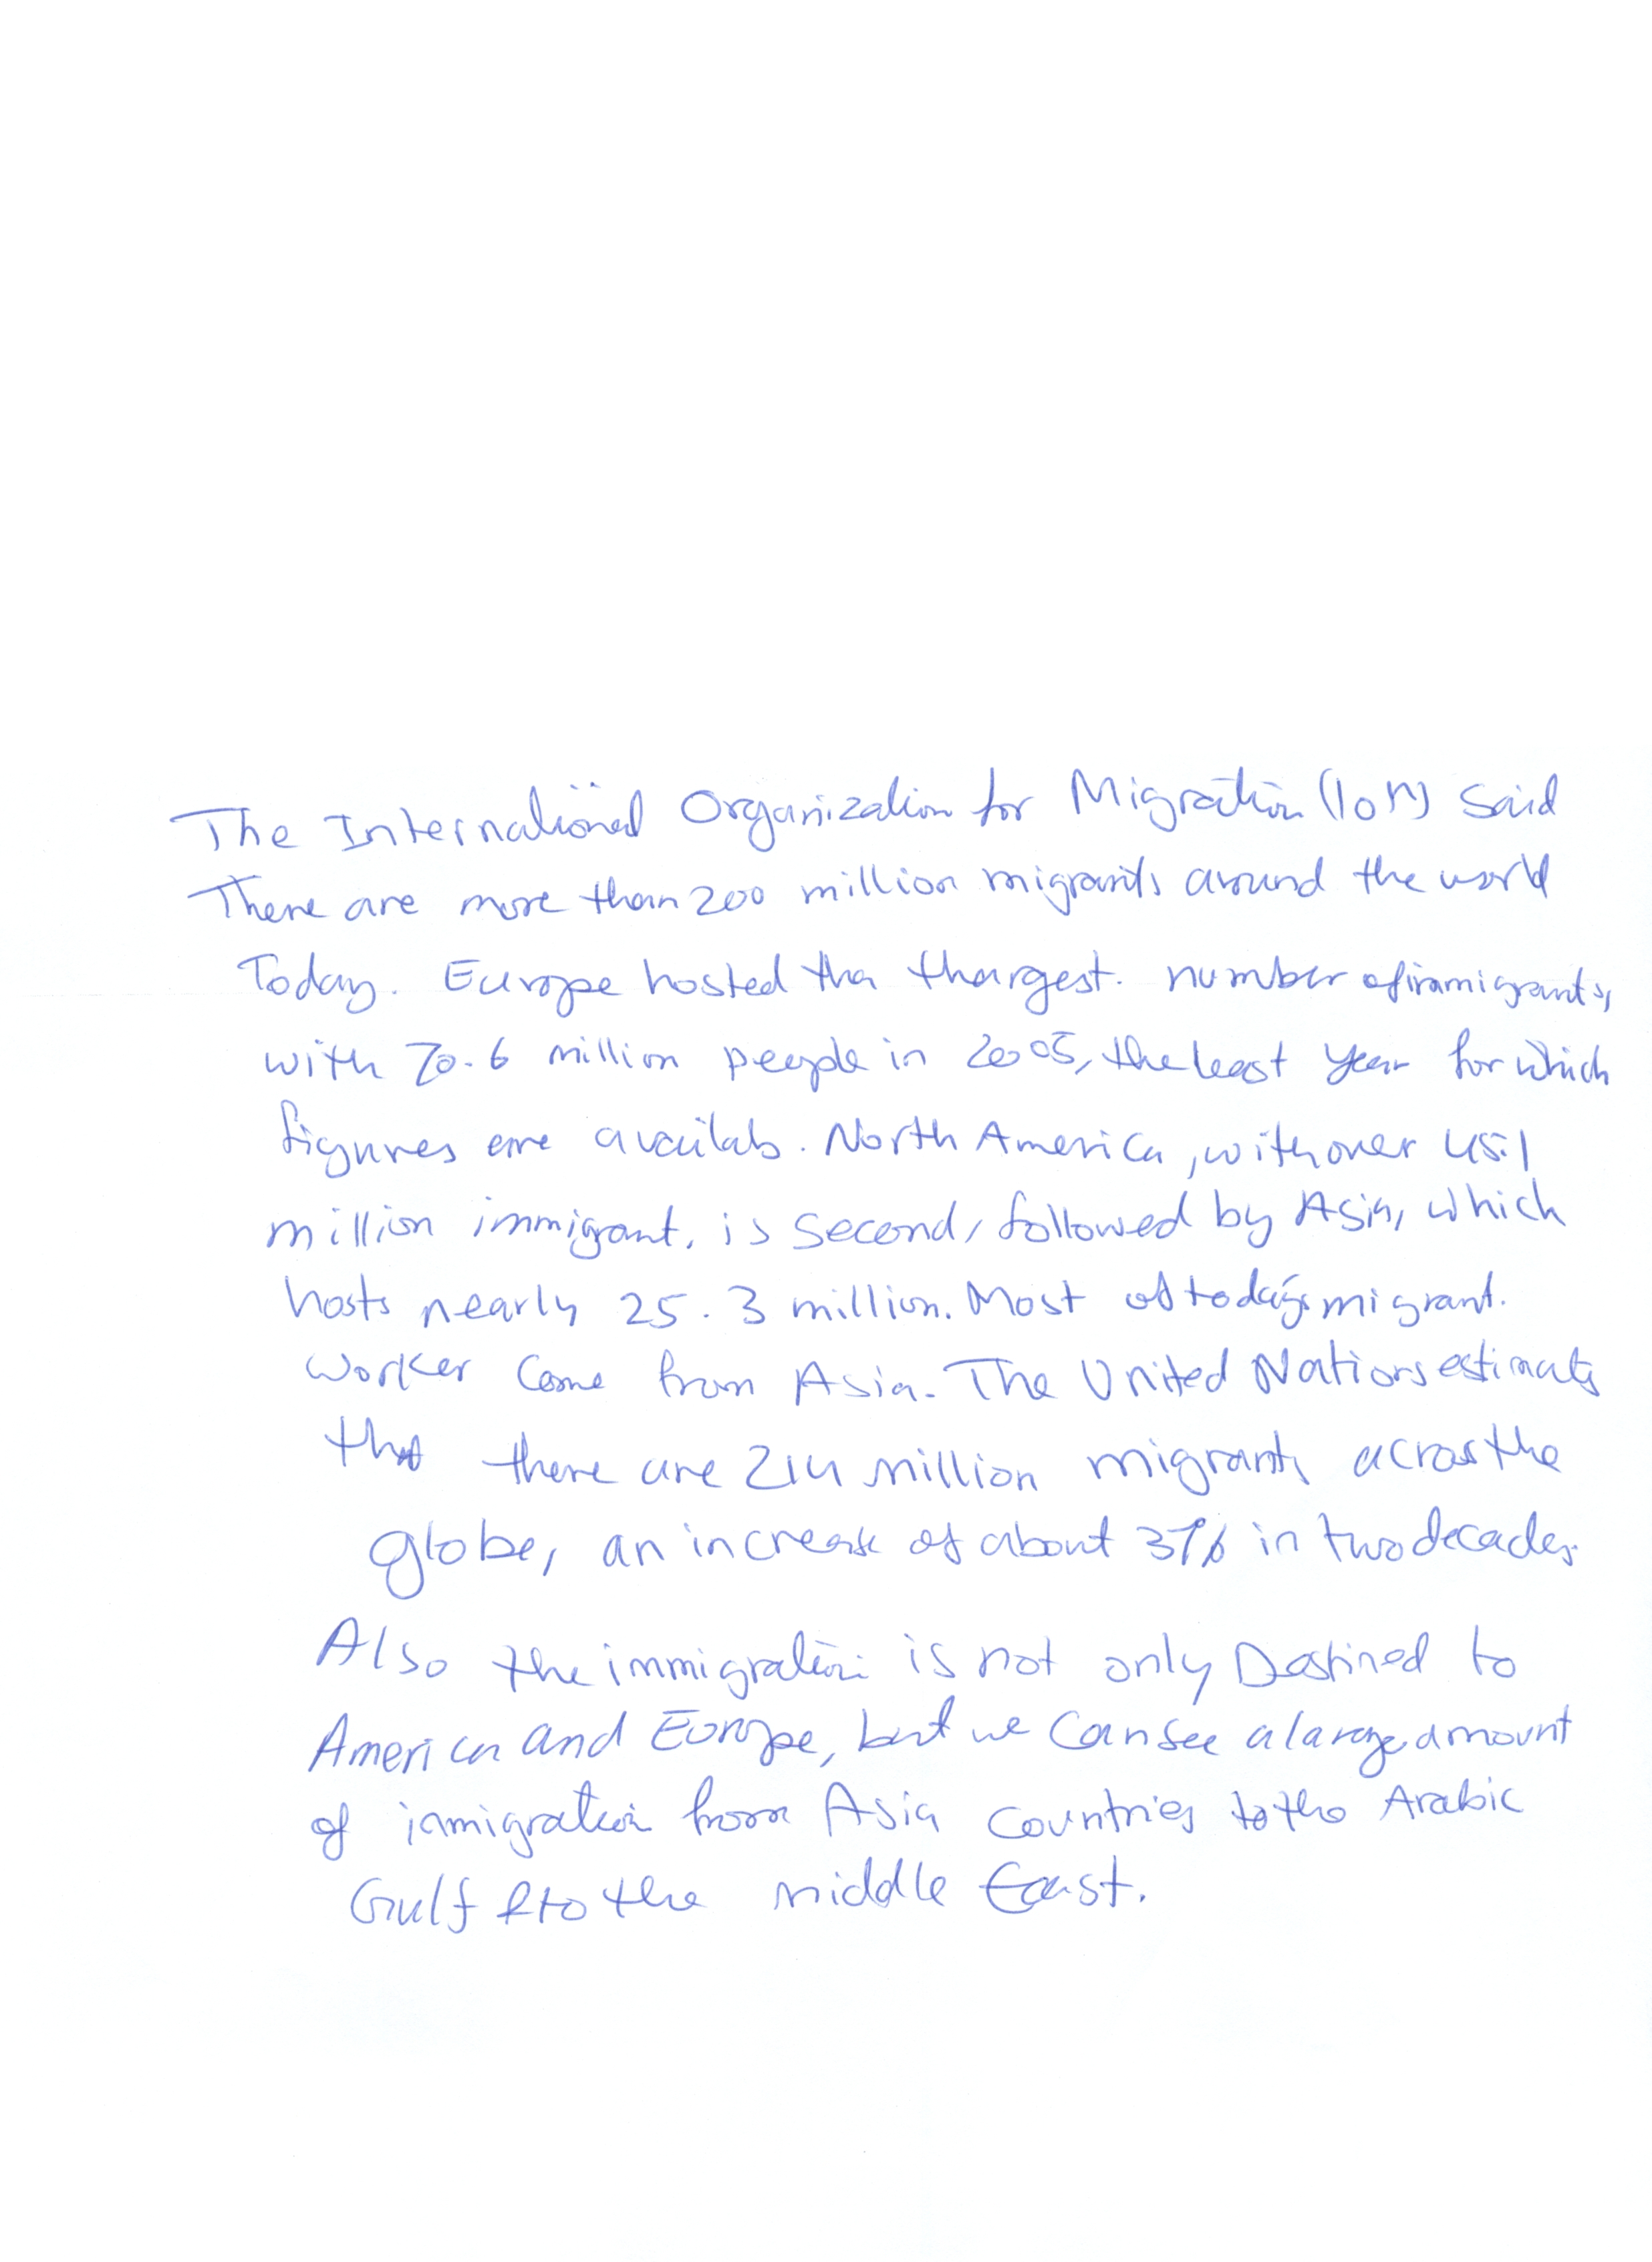 The International Organization for Migration (IOM) said
There are more than 200 million migrants around the world
Today. Europe hosted the thargest. number of immigrants,
with 70.6 million people in 2005, the least year for which
figures are availab. North America, with over 45.1
million immigrant, is second, followed by Asia, which
hosts nearly 25.3 million. Most of today's migrant.
worker come from Asia. The United Nations estimats
that there are 214 million migrants across the
globe, an increase of about 37% in two decades.
Also the immigration is not only Destined to
America and Europe, but we can see a large amount
of immigration from Asia countries to the Arabic
Gulf & to the middle East.